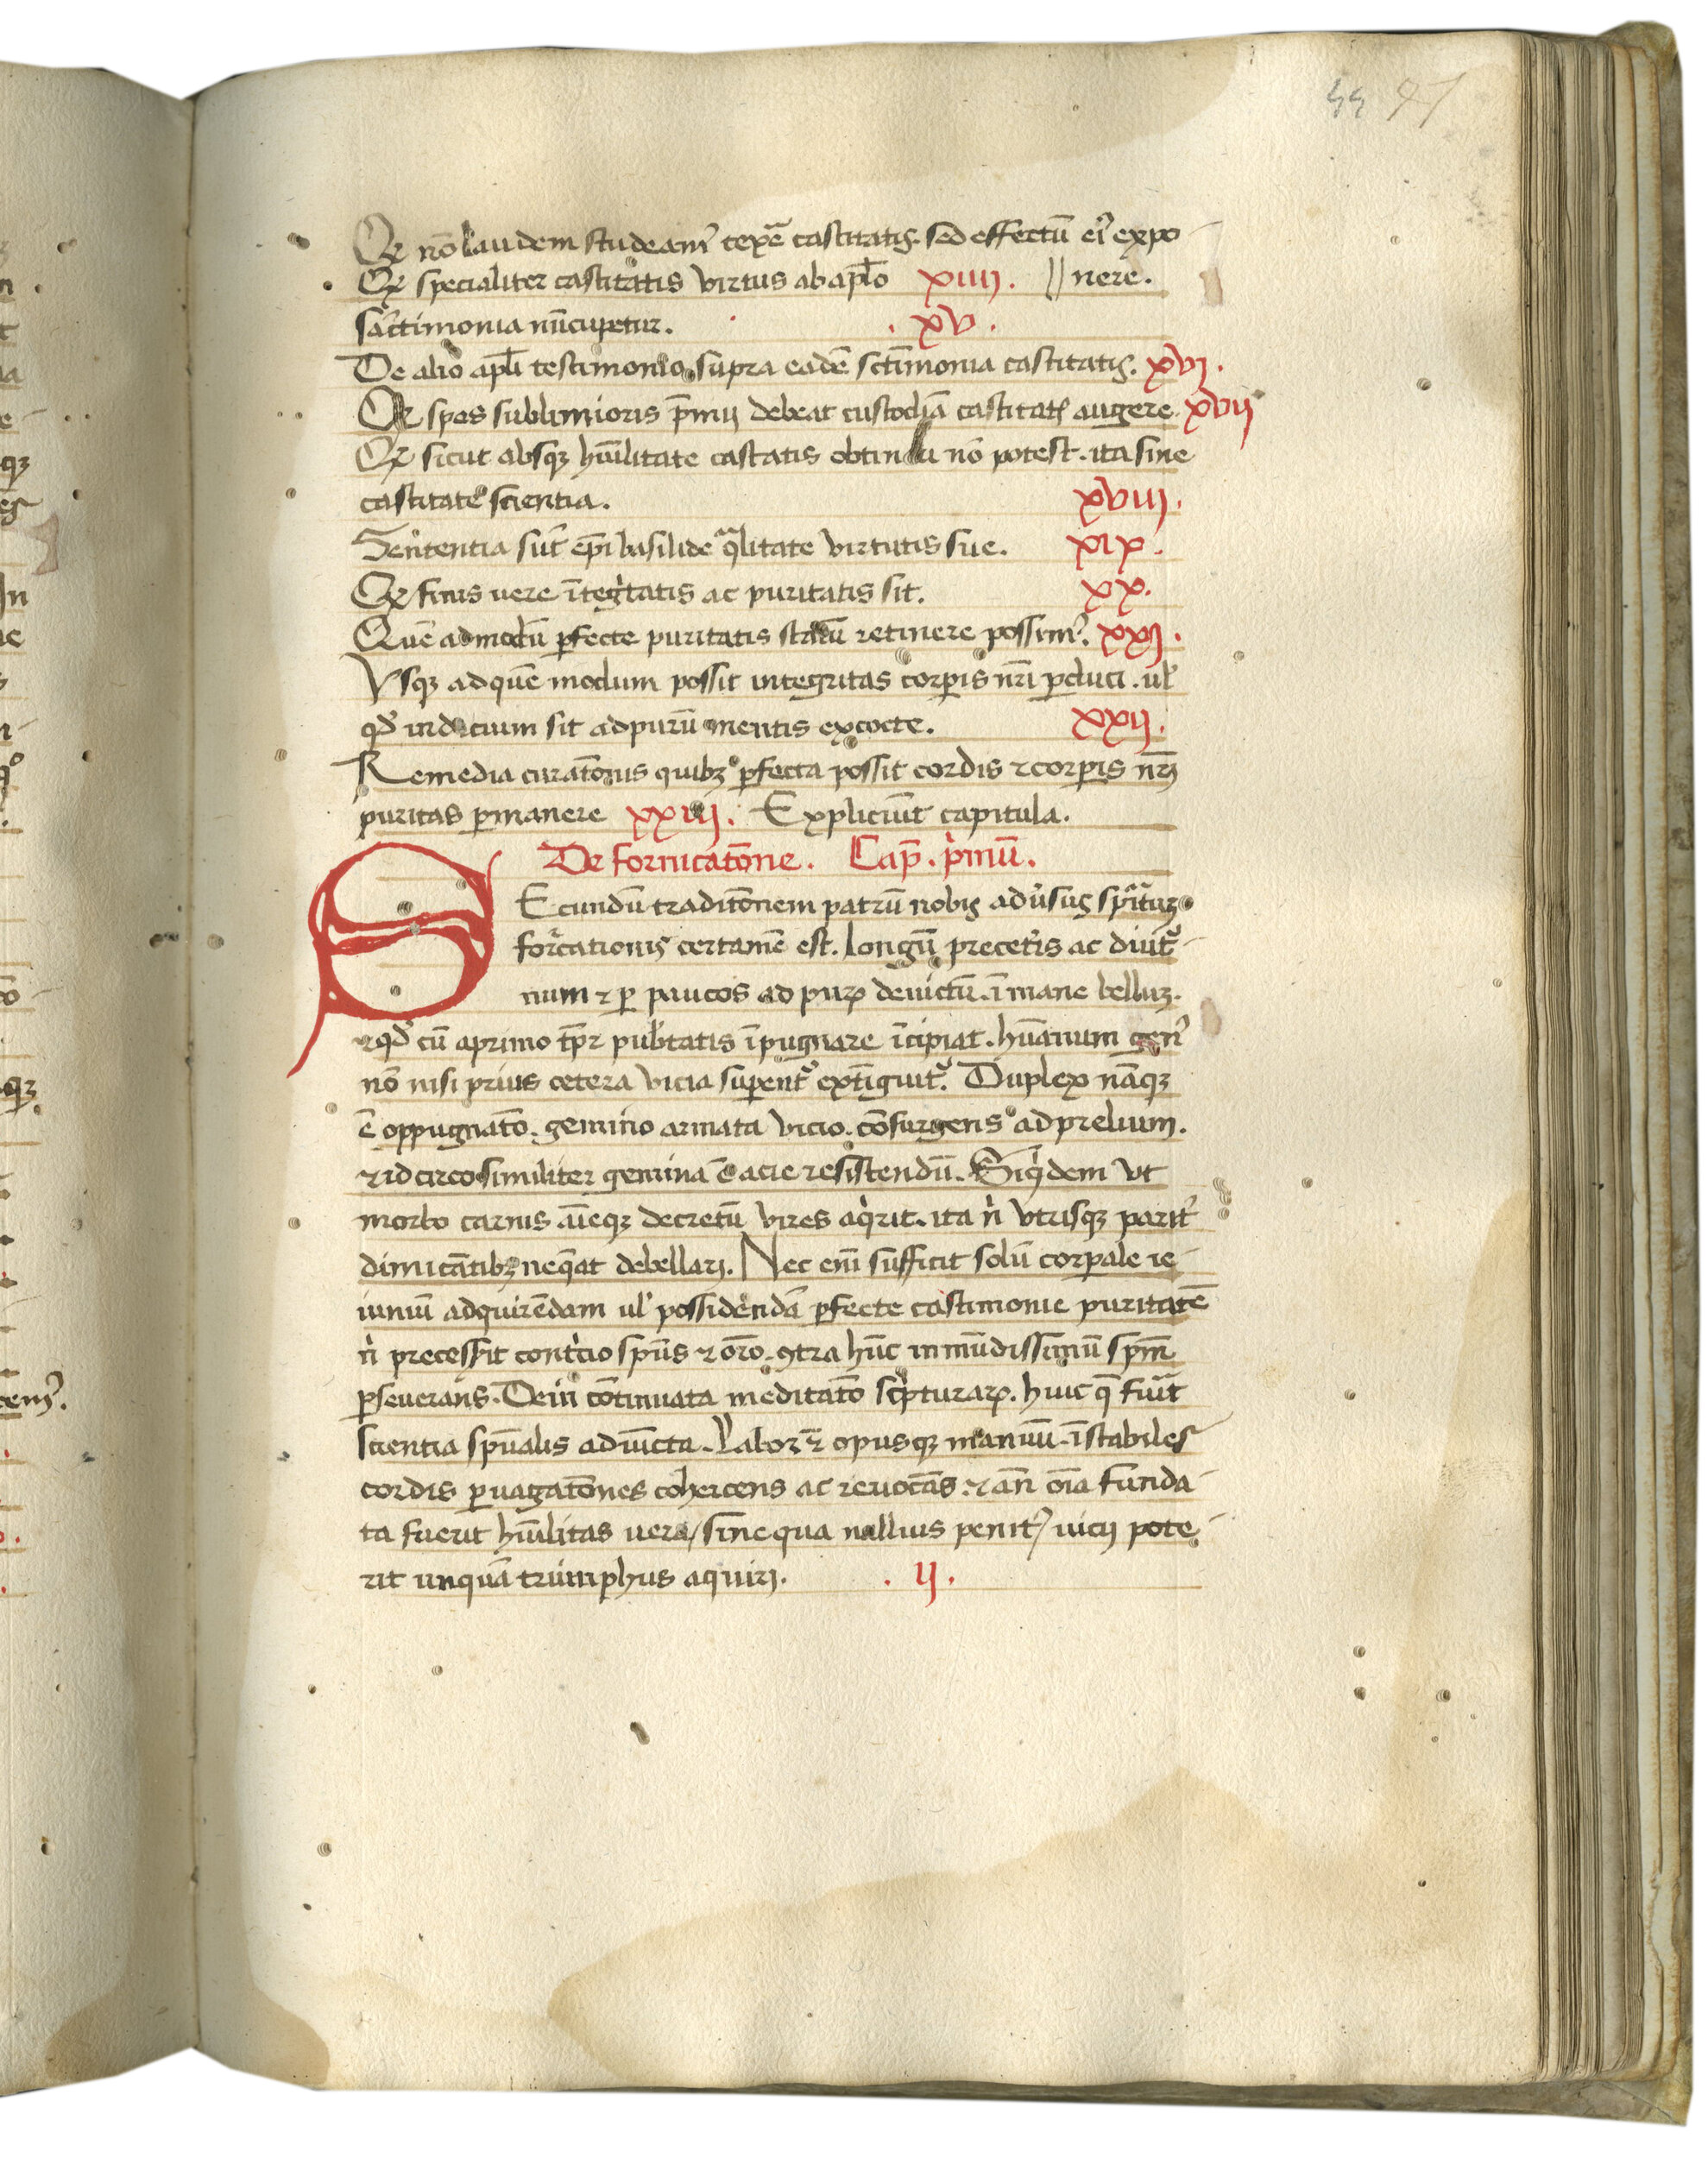 55 97
Qꝫ nō laudem studeamꝰ texē castitatis. sed effectū eiꝰ expo-
Qꝫ specialiter castitatis virtus ab apło xiiij. // nere.
sāctimonia nūcupetur. . xv .
De alio apłi testimonio supra eadē sctīmonia castitatis. xvj.
Qꝫ spes sublimioris p̄mij debeat custodiā castitatꝭ augere xvij
Qꝫ sicut absqꝫ hūilitate castatis obtin nō potest. ita sine
castitate scientia. xviij.
Sententia sūt ep̄i basilide qͣlitate virtutis sue. xix.
Qꝫ finis vere ītegͥtatis ac puritatis sit. xx.
Quē admodū ꝑfecte puritatis statū retinere possimꝰ. xxj.
Vsqꝫ ad quē modum possit integritas corꝑis nr̄i ꝑduci. ul̓
qd̓ indicium sit ad purū mentis excocte. xxij.
Remedia curatōnis quibꝫ ꝑfecta possit cordis ⁊ corꝑis nr̄j
puritas ꝑmanere xxiij. Expliciūt capitula.
De fornicatōne. Cap̄. pͥmū.
SEcundū traditōnem patrū nobis adūsus spīttuꝫ
forͣcationis certamē est. longū precetīs ac diutͣ-
num ⁊ ꝑ paucos ad puꝝ deuictū. īmane belluꝫ.
⁊ qd̓ cū a primo tꝑe pubtatis īpugnare īcipiat. hūanum genꝰ
nō nisi prius cetera vicia suꝑentͬ extīguitͬ. Duplex nāqꝫ
ē oppugnatō. gemino armata vicio. cōsurgens ad prelium.
⁊ idcirco similiter gemina ē acie resistendū. Siqͥdem vt
morbo carnis aīeqꝫ decretū vires aqͥrit. ita nͥ vtrisqꝫ paritͬ
dimicātibꝫ neqͣat debellarj. Nec em̄ sufficit solū corꝑale ie-
iuniū adquirēdam ul̓ possidendā ꝑfecte castimonie puritatē
nͥ precesſit contͥcio spūs ⁊ or̄o. ꝯtra hūc inmūdissimū spm̄
ꝑseuerans. Dein cōtinuata meditatō scpͥturaꝝ. huic qꝫ fuīt
scientia spūalis adiūcta. Labor ⁊ opusqꝫ manuū. īstabiles
cordis ꝑuagatōnes cohercens ac reuocās. ⁊ an̄ oīa funda-
ta fuerit hūilitas uera / sine qua nullius penitꝰ uicij pote
rit unquā triumphus aquirj. . ij .